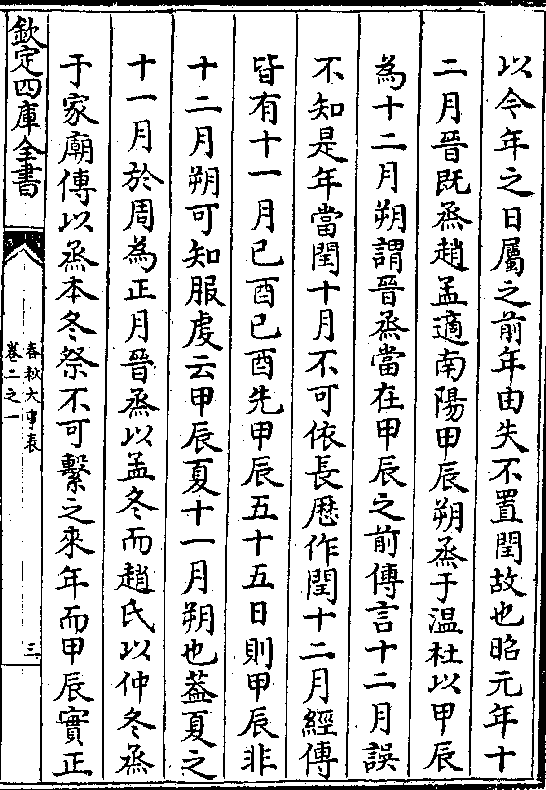 以今年之日屬之前年由失不置閏故也昭元年十
二月晉既烝趙孟適南陽甲辰朔烝于温杜以甲辰
為十二月朔謂晉烝當在甲辰之前傳言十二月誤
不知是年當閏十月不可依長厯作閏十二月經傳
皆有十一月己酉己酉先甲辰五十五日則甲辰非
十二月朔可知服虔云甲辰夏十一月朔也葢夏之
十一月於周為正月晉烝以孟冬而趙氏以仲冬烝
于家廟傳以烝本冬祭不可繫之來年而甲辰實正
欽定四庫全書
春秋大事表
卷二之一
三